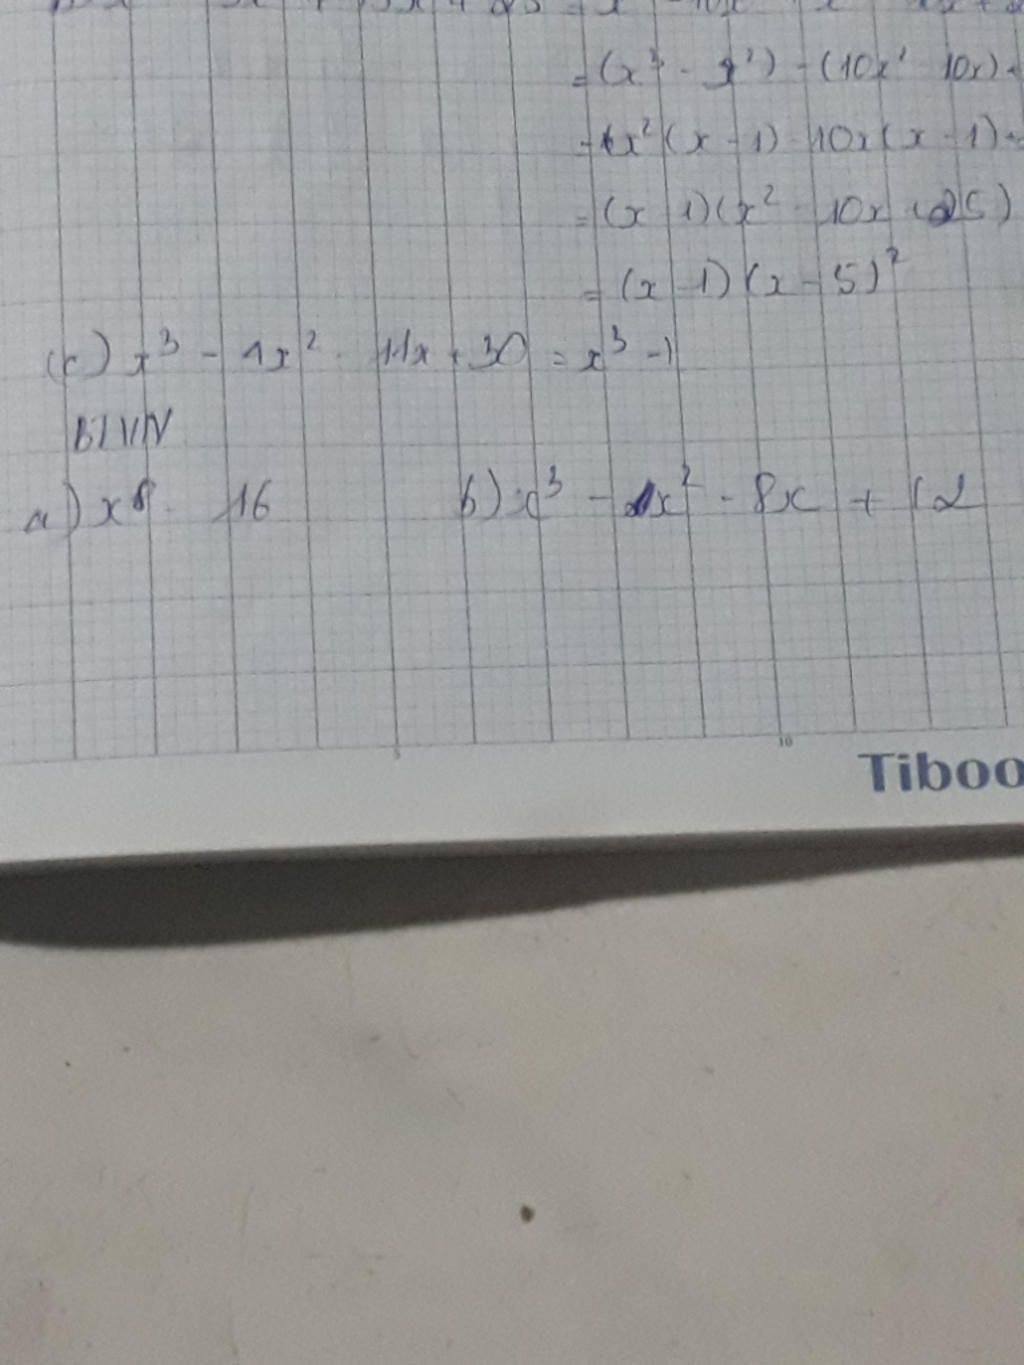 = (x³ - x²) - (10x² 10x) -
= x² (x - 1) - 10x (x - 1) -
= (x 1)(x² - 10x + 25)
= (x - 1) (x - 5)²
c) x³ - 1x² - 11x + 30 = x³ - 1
BTVN
a) x⁸ - 16 b) x³ - 1x² - 8x + 12
5 10
Tiboo